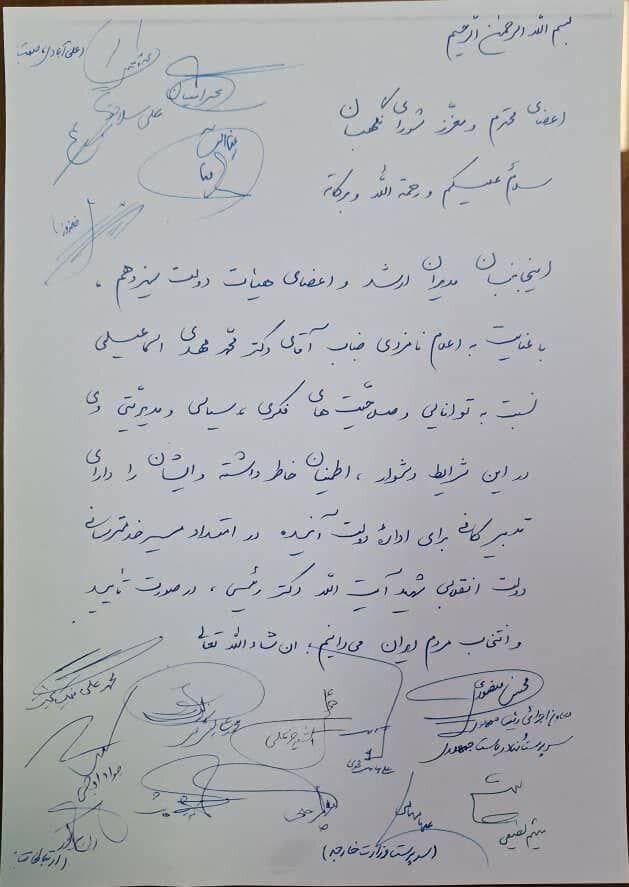 بسم الله الرحمن الرحیم
اعضای محترم و معزز شورای نگهبان
سلامٌ علیکم و رحمة الله و برکاته
اینجانبان مدیران ارشد و اعضای هیأت دولت سیزدهم ،
با عنایت به اعلام نامزدی جناب آقای دکتر محمّد مهدی اسماعیلی
نسبت به توانایی و صلاحیّت های فکری ، سیاسی و مدیریّتی وی
در این شرایط دشوار ، اطمینان خاطر داشته و ایشان را دارای
تدبیر کافی برای ادارهٔ دولت آینده در امتداد مسیر خدمترسانی
دولت انقلابی شهید آیت الله دکتر رئیسی ، در صورت تأیید
و انتخاب مردم ایران می‌دانیم ؛ ان شاء الله تعالی
علی آبادی، صمت
محرابیان
محسن منصوری
معاون اجرائی رئیس جمهور
سرپرست نهاد ریاست جمهوری
(سرپرست وزارت خارجه)
(ارتباطات)